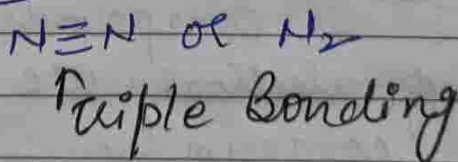 N≡N or N₂
Triple Bonding